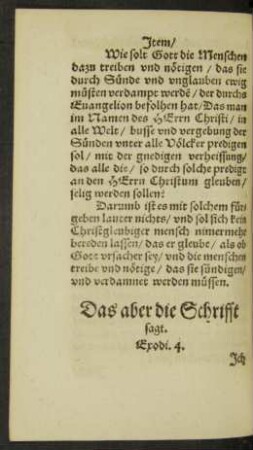 Item/
Wie solt Gott die Menschen
dazu treiben vnd nötigen / das sie
durch Sünde vnd vnglauben ewig
müsten verdampt werdē / der durchs
Euangelion befolhen hat / Das man
im Namen des HErrn Christi / in
alle Welt / busse vnd vergebung der
Sünden vnter alle Völcker predigen
sol / mit der gnedigen verheissung /
das alle die / so durch solche predigt
an den HErrn Christum gleuben /
selig werden sollen?
Darumb ist es mit solchem für,
geben lauter nichts / vnd sol sich kein
Christgleubiger mensch nimermehr
bereden lassen / das er gleube / als ob
Gott vrsacher sey / vnd die menschen
treibe vnd nötige / das sie sündigen /
vnd verdammet werden müssen.
Das aber die Schrifft
sagt.
Exodi. 4.
Ich